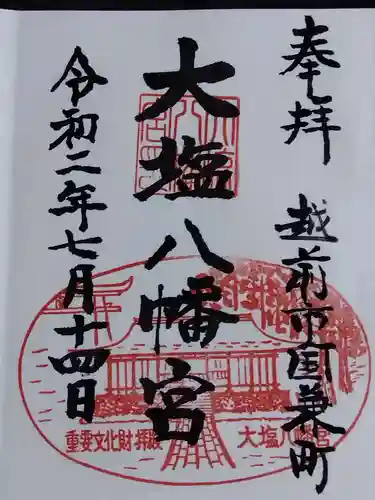 奉拝
越前市国兼町
大塩八幡宮
令和二年七月十四日
重要文化財 拝殿
大塩八幡宮